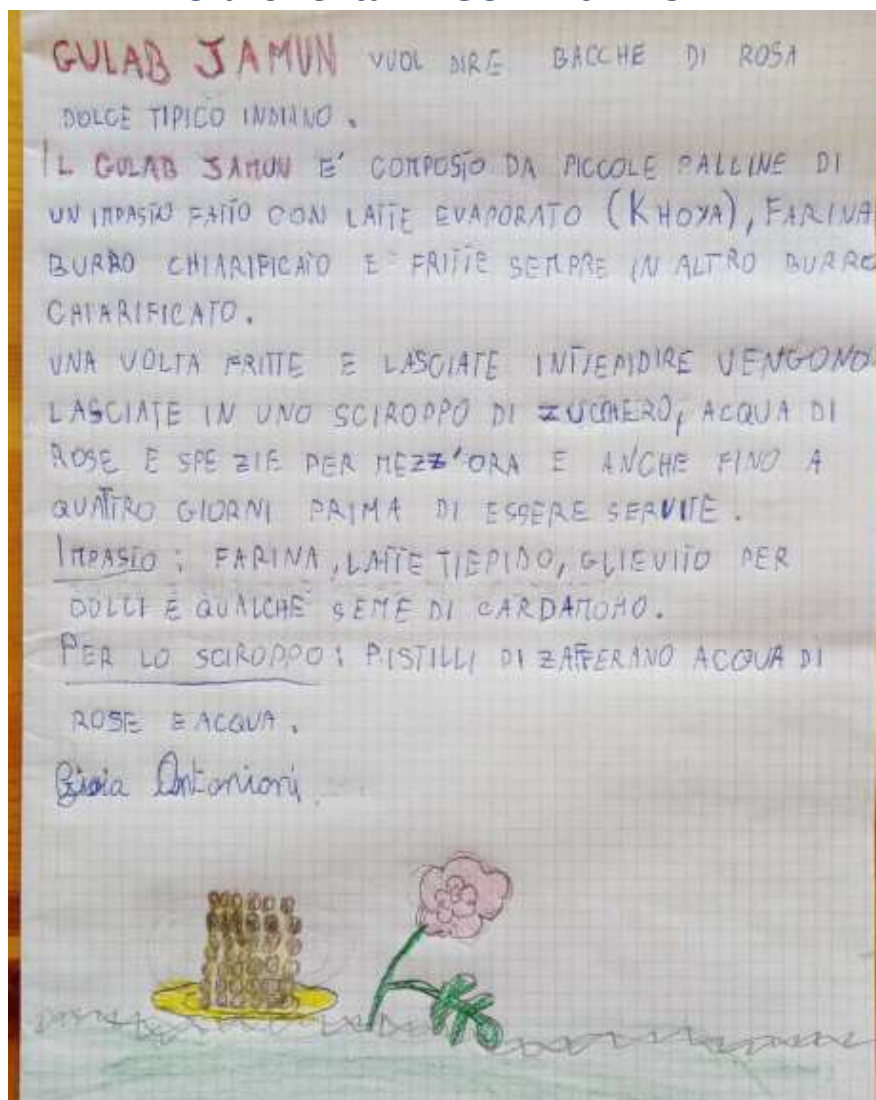 GULAB JAMUN VUOL DIRE BACCHE DI ROSA
DOLCE TIPICO INDIANO.
IL GULAB JAMUN E' COMPOSTO DA PICCOLE PALLINE DI
UN IMPASTO FATTO CON LATTE EVAPORATO (KHOYA), FARINA
BURRO CHIARIFICATO E FRITTE SEMPRE IN ALTRO BURRO
CHIARIFICATO.
UNA VOLTA FRITTE E LASCIATE INTIEPIDIRE VENGONO
LASCIATE IN UNO SCIROPPO DI ZUCCHERO, ACQUA DI
ROSE E SPEZIE PER MEZZ'ORA E ANCHE FINO A
QUATTRO GIORNI PRIMA DI ESSERE SERVITE.
IMPASTO: FARINA, LATTE TIEPIDO, LIEVITO PER
DOLCI E QUALCHE SEME DI CARDAMOMO.
PER LO SCIROPPO: PISTILLI DI ZAFFERANO ACQUA DI
ROSE E ACQUA.
Gioia Antonioni